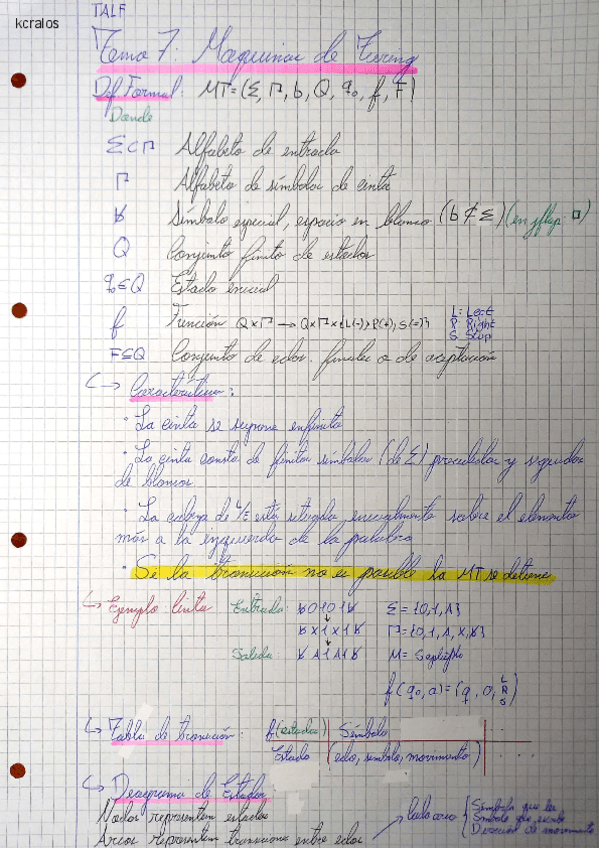 kcralos
TALF
Tema 7: Maquinas de Turing
Def. Formal: MT=(Σ, Γ, b, Q, q₀, f, F)
Donde
Σ⊂Γ Alfabeto de entrada
Γ Alfabeto de símbolos de cinta
ƀ Símbolo especial, espacio en blanco (b∉Σ) (en jflap □)
Q Conjunto finito de estados
q₀∈Q Estado inicial
f Función Q×Γ → Q×Γ×{L(-), R(+), S(=)}
L: Left
R: Right
S: Stop
F⊆Q Conjunto de edos. finales o de aceptación
↳ Características:
· La cinta se supone infinita
· La cinta consta de finitos símbolos (de Σ) precedidos y seguidos
de blancos
· La cabeza de L/E está situada inicialmente sobre el elemento
más a la izquierda de la palabra
· Si la transición no es posible la MT se detiene
↳ Ejemplo cinta Entrada: ƀ0101ƀ Σ={0,1,A}
ƀx1x1ƀ Γ={0,1,A,X,ƀ}
Salida: ƀA1A1ƀ M= Septupla
f(q₀,a)=(q, 0, L R S)
↳ Tabla de transición: f(estados) Símbolo
Estado (edo, simbolo, movimiento)
↳ Diagrama de Estados
Nodos representan estados
Arcos representan transiciones entre edos
cada arco
Símbolo que lee
Símbolo que escribe
Dirección de movimiento